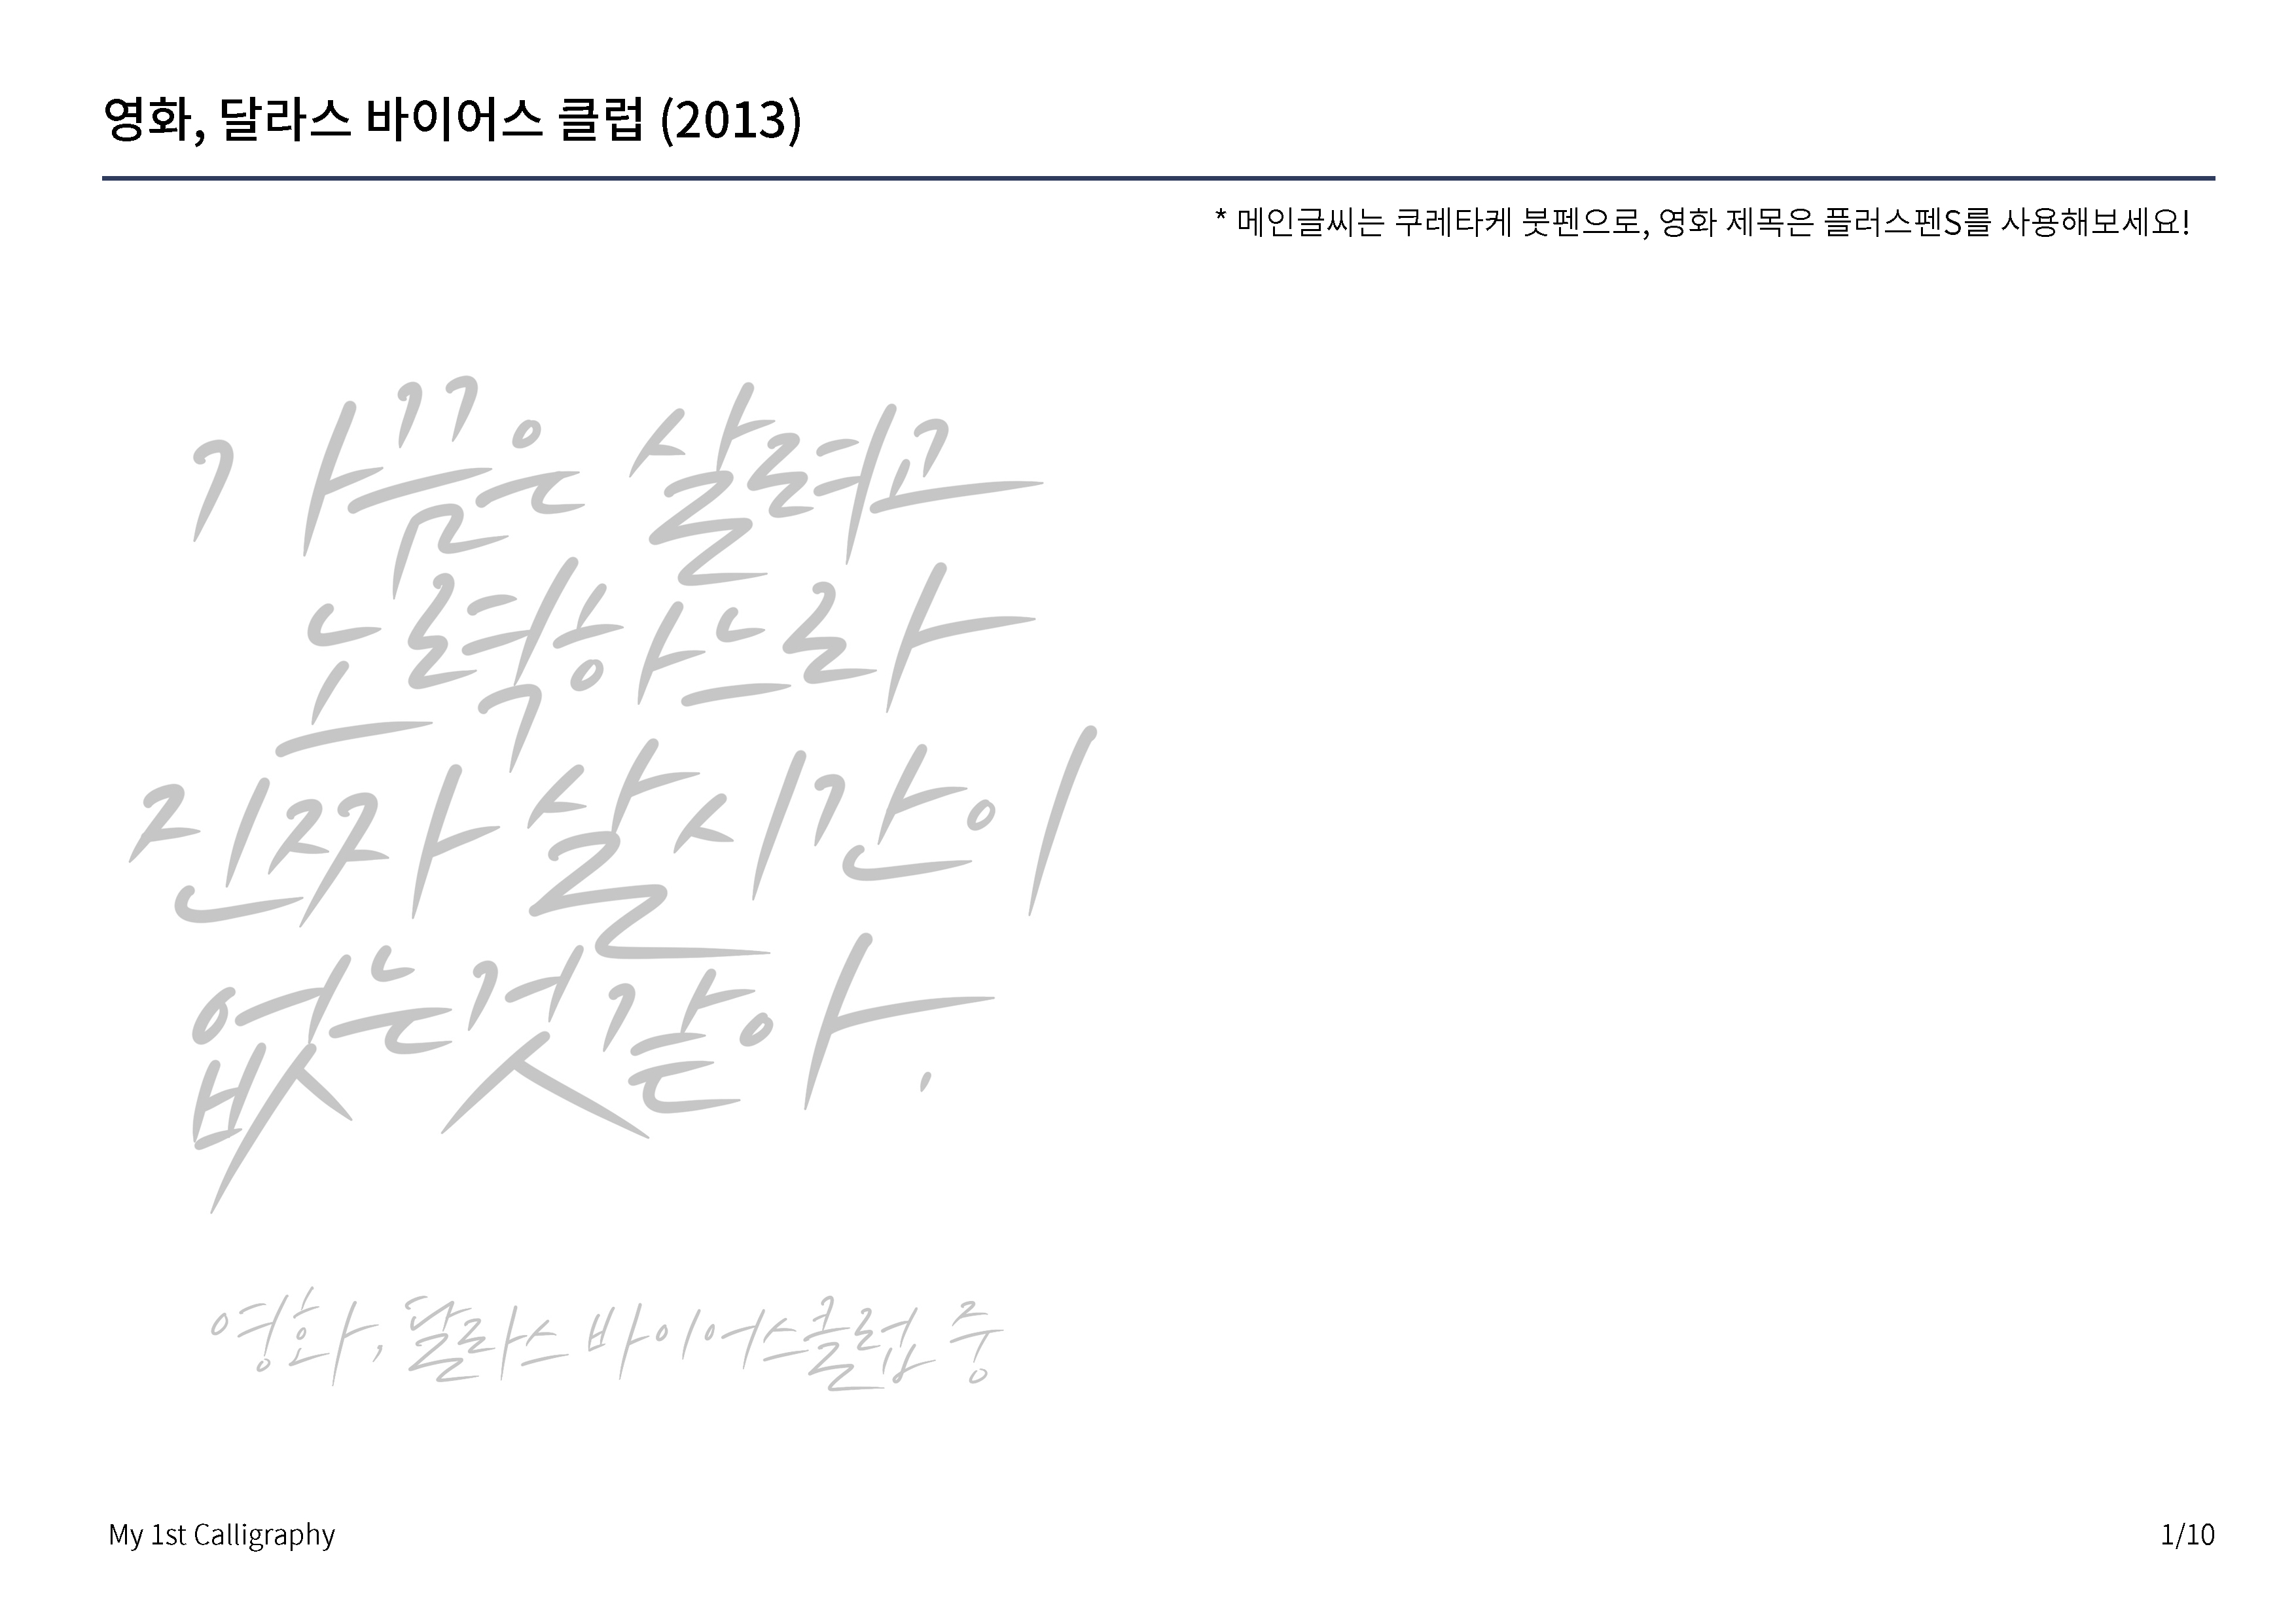 영화, 달라스 바이어스 클럽 (2013)
* 메인글씨는 쿠레타케 붓펜으로, 영화 제목은 플러스펜S를 사용해보세요!
가끔은 살려고
노력하느라
진짜 살 시간이
없는 것 같아.
영화, 달라스 바이어스 클럽 중
My 1st Calligraphy
1/10